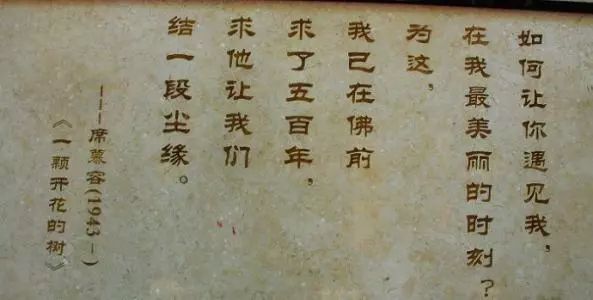 如何让你遇见我，
在我最美丽的时刻？
为这，
我已在佛前
求了五百年，
求他让我们
结一段尘缘。
———席慕容(1943－)
《一颗开花的树》